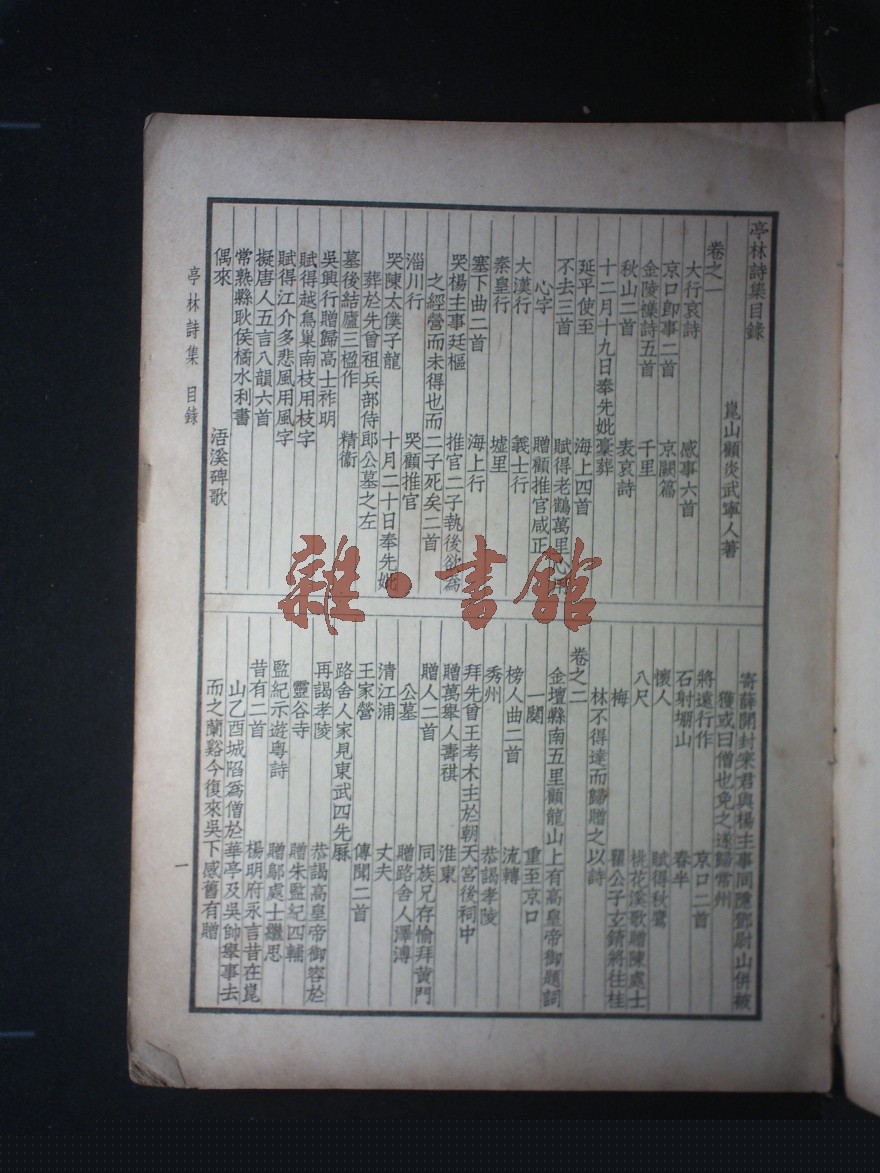 亭林詩集目錄
崑山顧炎武寧人著
卷之一
大行哀詩 感事六首
京口卽事二首 京闕篇
金陵襍詩五首 千里
秋山二首 表哀詩
十二月十九日奉先妣藁葬
延平使至 海上四首
不去三首 賦得老鶴萬里心用
心字 贈顧推官咸正
大漢行 義士行
秦皇行 墟里
塞下曲二首 海上行
哭楊主事廷樞 推官二子執後欲爲
之經營而未得也而二子死矣二首
淄川行 哭顧推官
哭陳太僕子龍 十月二十日奉先妣
葬於先曾祖兵部侍郎公墓之左
墓後結廬三楹作 精衞
吳興行贈歸高士祚明
賦得越鳥巢南枝用枝字
賦得江介多悲風用風字
擬唐人五言八韻六首
常熟縣耿侯橘水利書
偶來 浯溪碑歌
寄薛開封寀君與楊主事同隱鄧尉山併被
獲或曰僧也免之遂歸常州
將遠行作 京口二首
石射堋山 春半
懷人 賦得秋鷹
八尺 桃花溪歌贈陳處士
梅 瞿公子玄錥將往桂
林不得達而歸贈之以詩
卷之二
金壇縣南五里顧龍山上有高皇帝御題詞
一闋 重至京口
榜人曲二首 流轉
秀州 恭謁孝陵
拜先曾王考木主於朝天宮後祠中
贈萬舉人壽祺 淮東
贈人二首 同族兄存愉拜黃門
公墓 贈路舍人澤溥
清江浦 丈夫
王家營 傳聞二首
路舍人家見東武四先曆
再謁孝陵 恭謁高皇帝御容於
靈谷寺 贈朱監紀四輔
監紀示遊粵詩 贈鄔處士繼思
昔有二首 楊明府永言昔在崑
山乙酉城陷爲僧於華亭及吳帥舉事去
而之蘭谿今復來吳下感舊有贈
亭林詩集 目錄
一
雜·書館